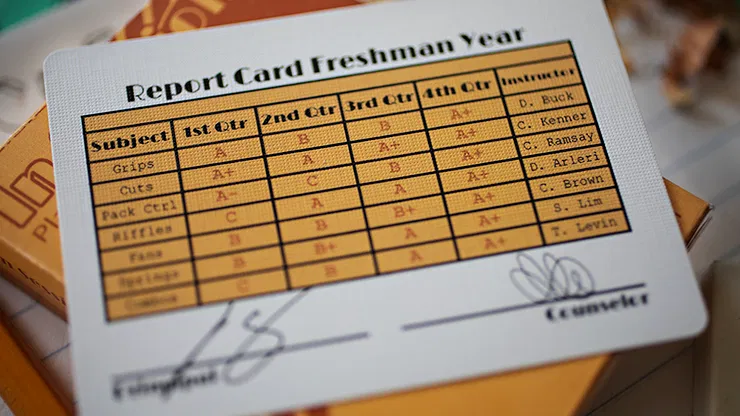 Report Card Freshman Year
Subject 1st Qtr 2nd Qtr 3rd Qtr 4th Qtr Instructor
Grips A B B A+ D. Buck
Cuts A+ A A+ A+ C. Kenner
Pack Ctrl A- C B A+ C. Ramsay
Riffles C A A A+ D. Arleri
Fans B B B+ A+ C. Brown
Springs B B+ A A+ S. Lim
Combos C B A A+ T. Levin
Counselor